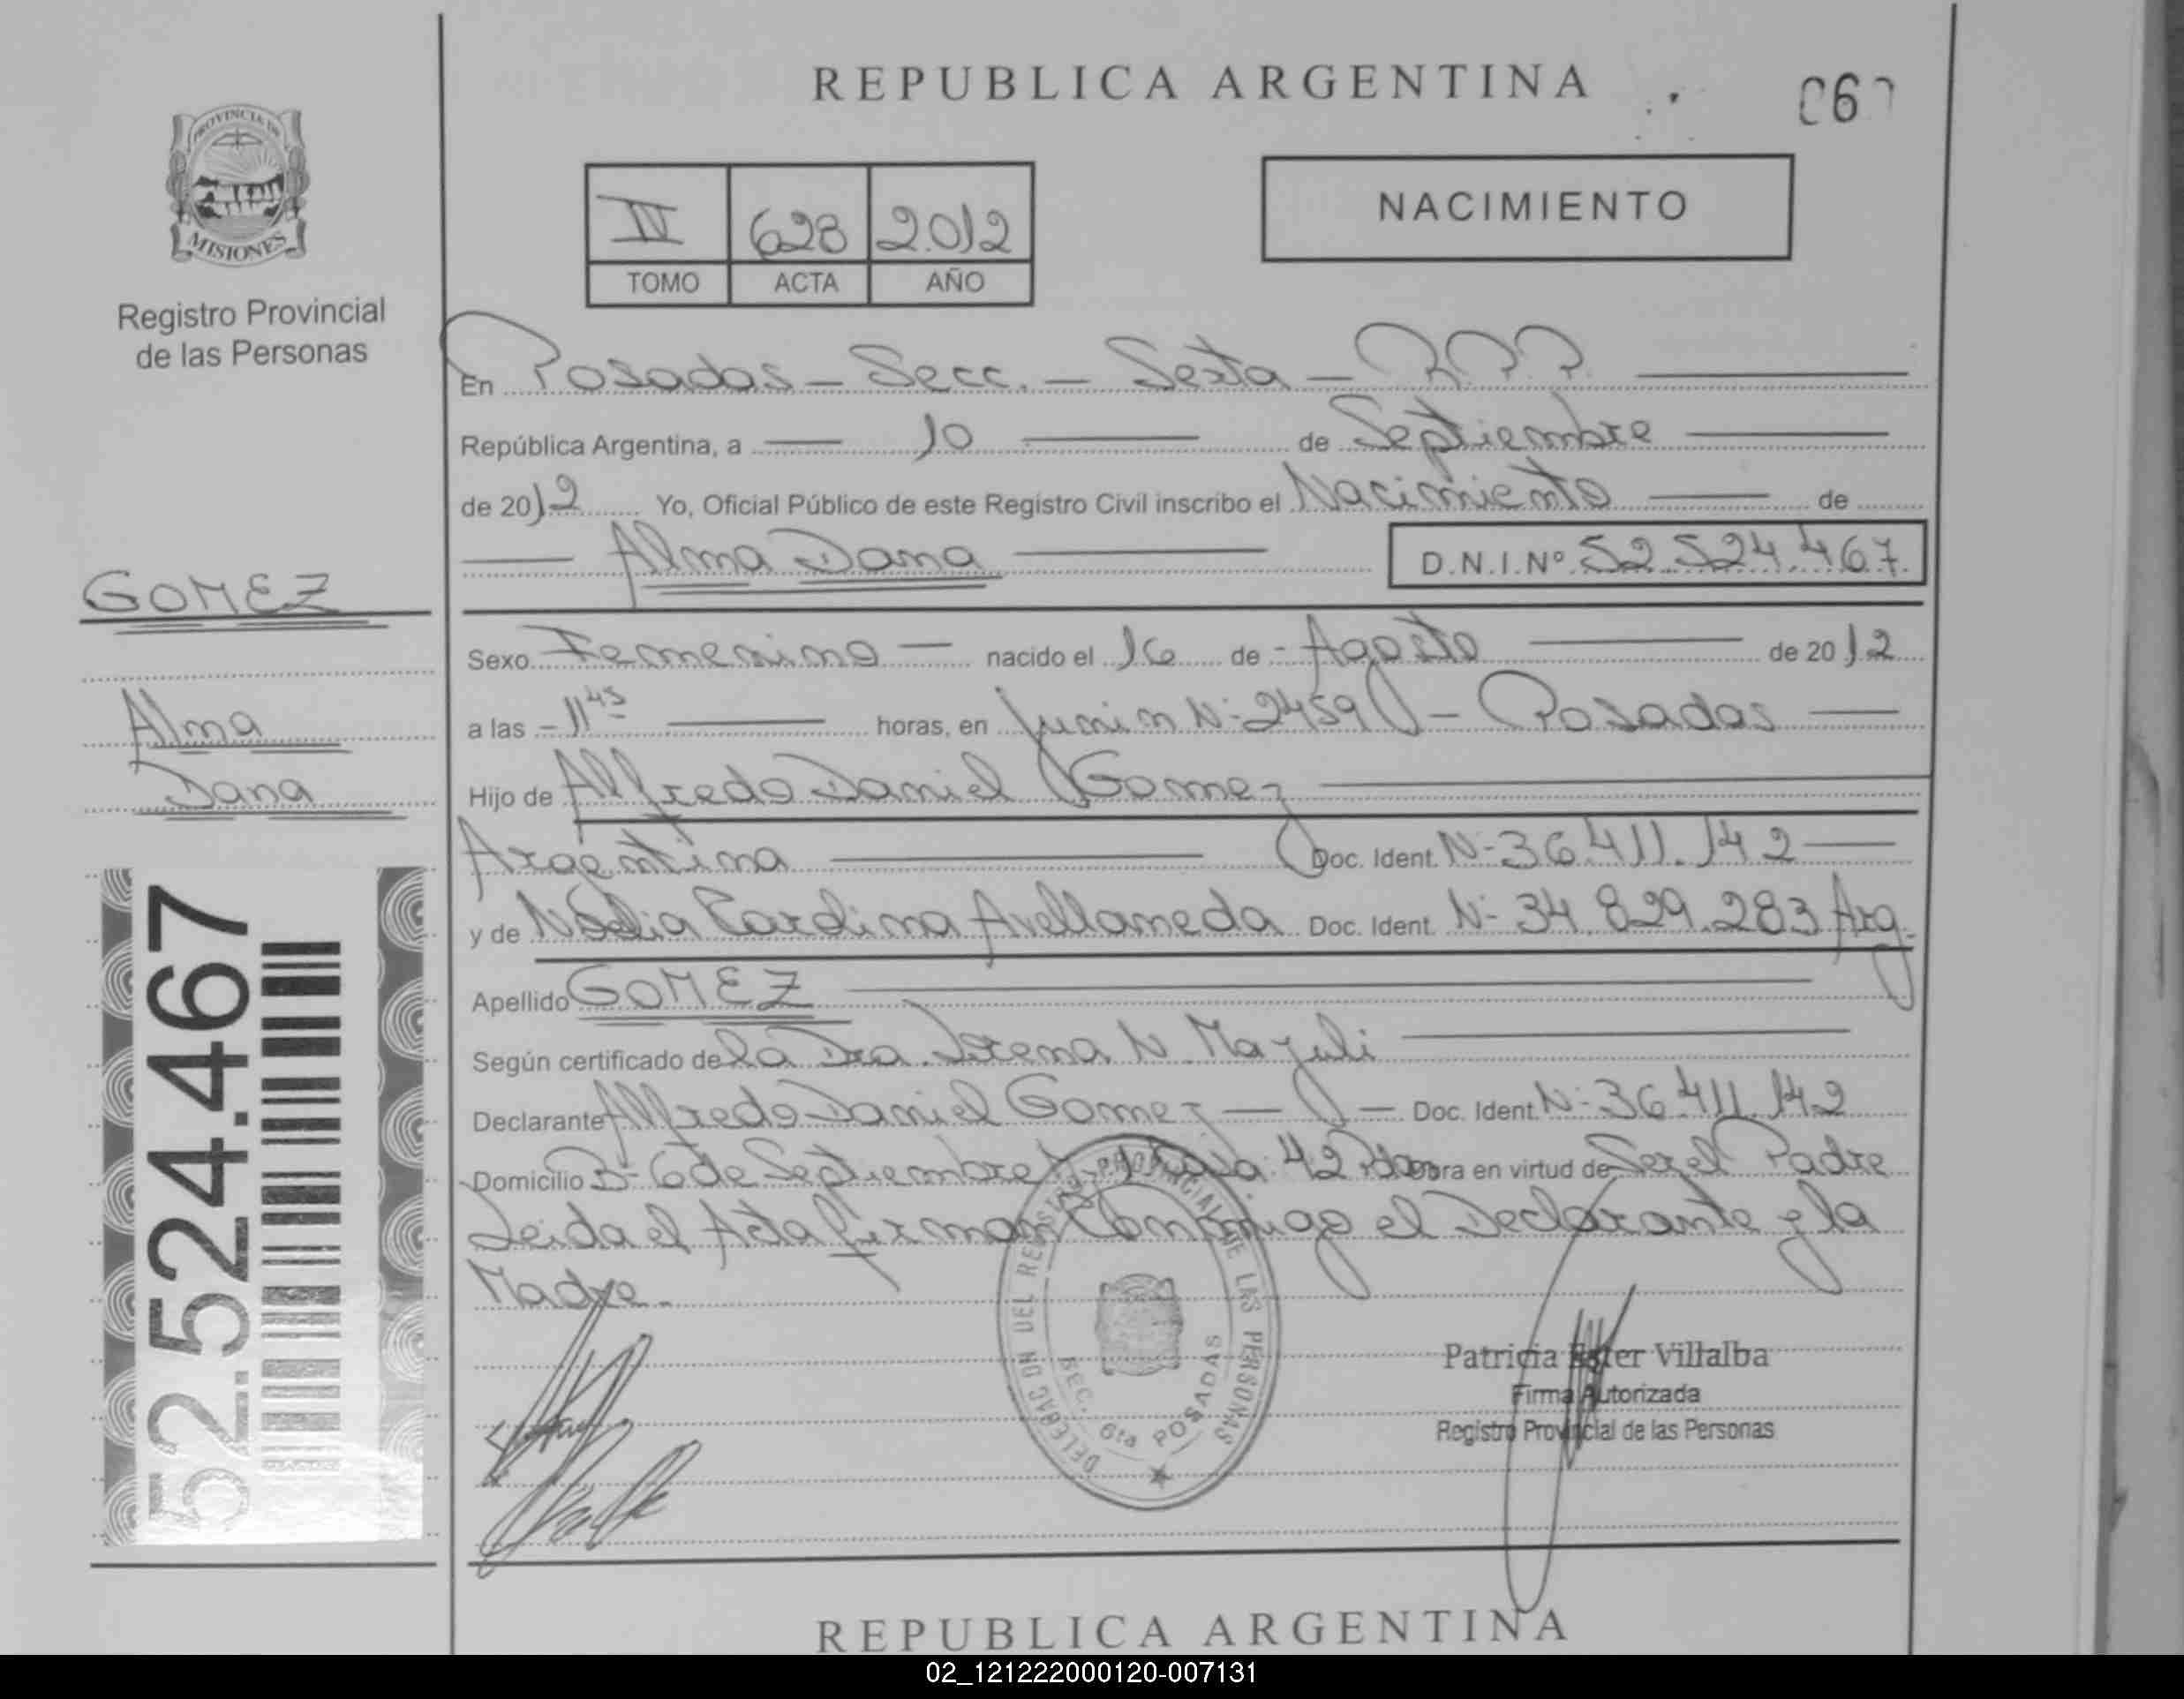 REPUBLICA ARGENTINA
PROVINCIA DE
MISIONES
Registro Provincial
de las Personas
IV 628 2.012
TOMO ACTA AÑO
NACIMIENTO
En Posadas - Secc. - Sexta - R.P.P.
República Argentina, a 10 de Septiembre
de 2012 Yo, Oficial Público de este Registro Civil inscribo el Nacimiento de
Alma Dana D.N.I.Nº 52.524.467
GOMEZ
Alma
Dana
Sexo Femenino nacido el 16 de Agosto de 2012
a las 11 45 horas, en Junin N: 2459 - Posadas
Hijo de Alfredo Daniel Gomez
Argentina Doc. Ident. N- 36.411.142
y de Avellaneda Doc. Ident. N- 34.829.283 Arg.
Apellido GOMEZ
Según certificado de la Dra. N.
Declarante Alfredo Daniel Gomez Doc. Ident. N- 36.411.142
Domicilio B- 6 de Septiembre 42 Obra en virtud de Ser el Padre
Leida el Acta firman Conmigo el Declarante y la
Madre.
52.524.467
DELEGACION DEL REGISTRO PROVINCIAL DE LAS PERSONAS
SEC. 6ta POSADAS
Patricia Ester Villalba
Firma Autorizada
Registro Provincial de las Personas
REPUBLICA ARGENTINA
02_121222000120-007131